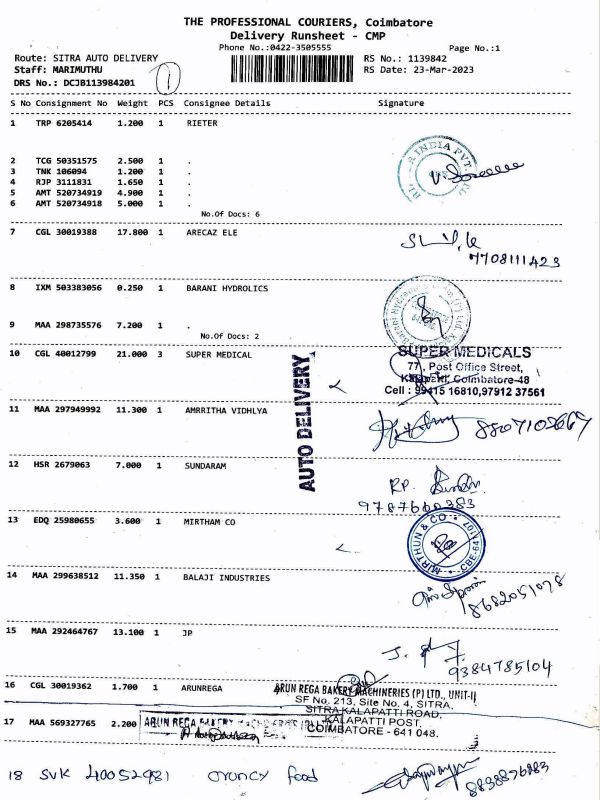 THE PROFESSIONAL COURIERS, Coimbatore
Delivery Runsheet - CMP
Phone No.:0422-3505555
Page No.:1
Route: SITRA AUTO DELIVERY
RS No.: 1139842
Staff: MARIMUTHU
RS Date: 23-Mar-2023
DRS No.: DCJB113984201
1
S No Consignment No Weight PCS Consignee Details Signature
1 TRP 6205414 1.200 1 RIETER
2 TCG 50351575 2.500 1 .
3 TNK 106094 1.200 1 .
4 RJP 3111831 1.650 1 .
5 AMT 520734919 4.900 1 .
6 AMT 520734918 5.000 1 .
No.Of Docs: 6
INDIA PVT.
7 CGL 30019388 17.800 1 ARECAZ ELE
7708111423
8 IXM 503383056 0.250 1 BARANI HYDROLICS
9 MAA 298735576 7.200 1 .
No.Of Docs: 2
10 CGL 40012799 21.000 3 SUPER MEDICAL
SUPER MEDICALS
77, Post Office Street,
Coimbatore-48
Cell : 99415 16810,97912 37561
AUTO DELIVERY
11 MAA 297949992 11.300 1 AMRRITHA VIDHLYA
12 HSR 2679063 7.000 1 SUNDARAM
RP.
13 EDQ 25980655 3.600 1 MIRTHAM CO
MIRTHUN & CO
14 MAA 299638512 11.350 1 BALAJI INDUSTRIES
8682051078
15 MAA 292464767 13.100 1 JP
9384785104
16 CGL 30019362 1.700 1 ARUNREGA
ARUN REGA BAKERY MACHINERIES (P) LTD., UNIT-II
SF No. 213, Site No. 4, SITRA,
SITRA KALAPATTI ROAD,
KALAPATTI POST,
COIMBATORE - 641 048.
17 MAA 569327765 2.200 ARUN REGA BAKERY
18 SVK 40052981 food